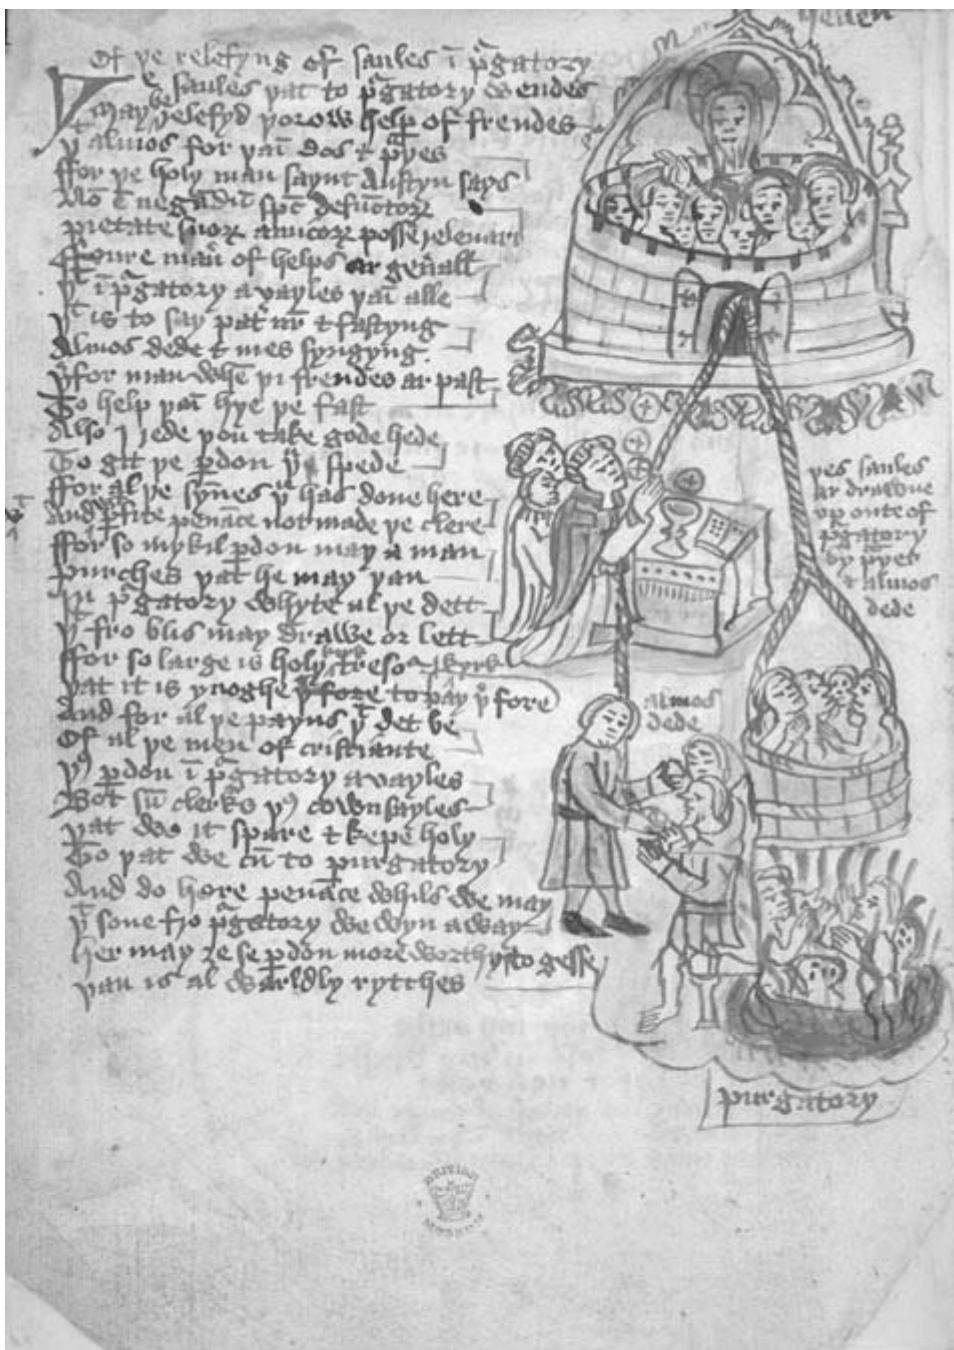 heuen
Of ye relefyng of saules ī p̄gatory
Ye saules yat to p̄gatory wendes
may be relefyd yorow help of frendes
yt almos for yaī dos & p̄yes
ffor ye holy man saynt Austyn says
Nō ē negādū spc̄ defunctoꝝ
pietate suoꝝ amicoꝝ posse releuari
ffoure man̄ of helps ar gen̄all
yt ī p̄gatory avayles yaī alle
yt is to say pat̄ nr̄ & fastyng
Almos dede & mes syngyng
yͬfor man whē yi frendes ar past
To help yaī hye ye fast
Also I rede you take gode hede
To git ye p̄don yͬ spede
ffor al ye synes yͧ has done here
And p̄fite penāce not made ye clere
ffor so mykil p̄don may a man
purches yat he may yan
In p̄gatory whyte al ye dett
yt fro blis may drawe or lett
ffor so large is holy kyrk tresor kyrk
yat it is ynoghe yͬfore to pay yͬfore
And for al ye payns yt det be
Of al ye men of cristiante
yus p̄don ī p̄gatory avayles
Bot sū clerks yus cownsayles
yat we it spare & kepe holy
To yat we cū to purgatory
And do here penāce whils we may
yt sone fro p̄gatory we wyn away
her may ȝe se p̄don more worthy is to gesse
yan is al warldly rytches
yes saules
ar drawne
vp oute of
p̄gatory
by p̄yes
& almos
dede
almos
dede
purgatory
BRITISH
MUSEUM